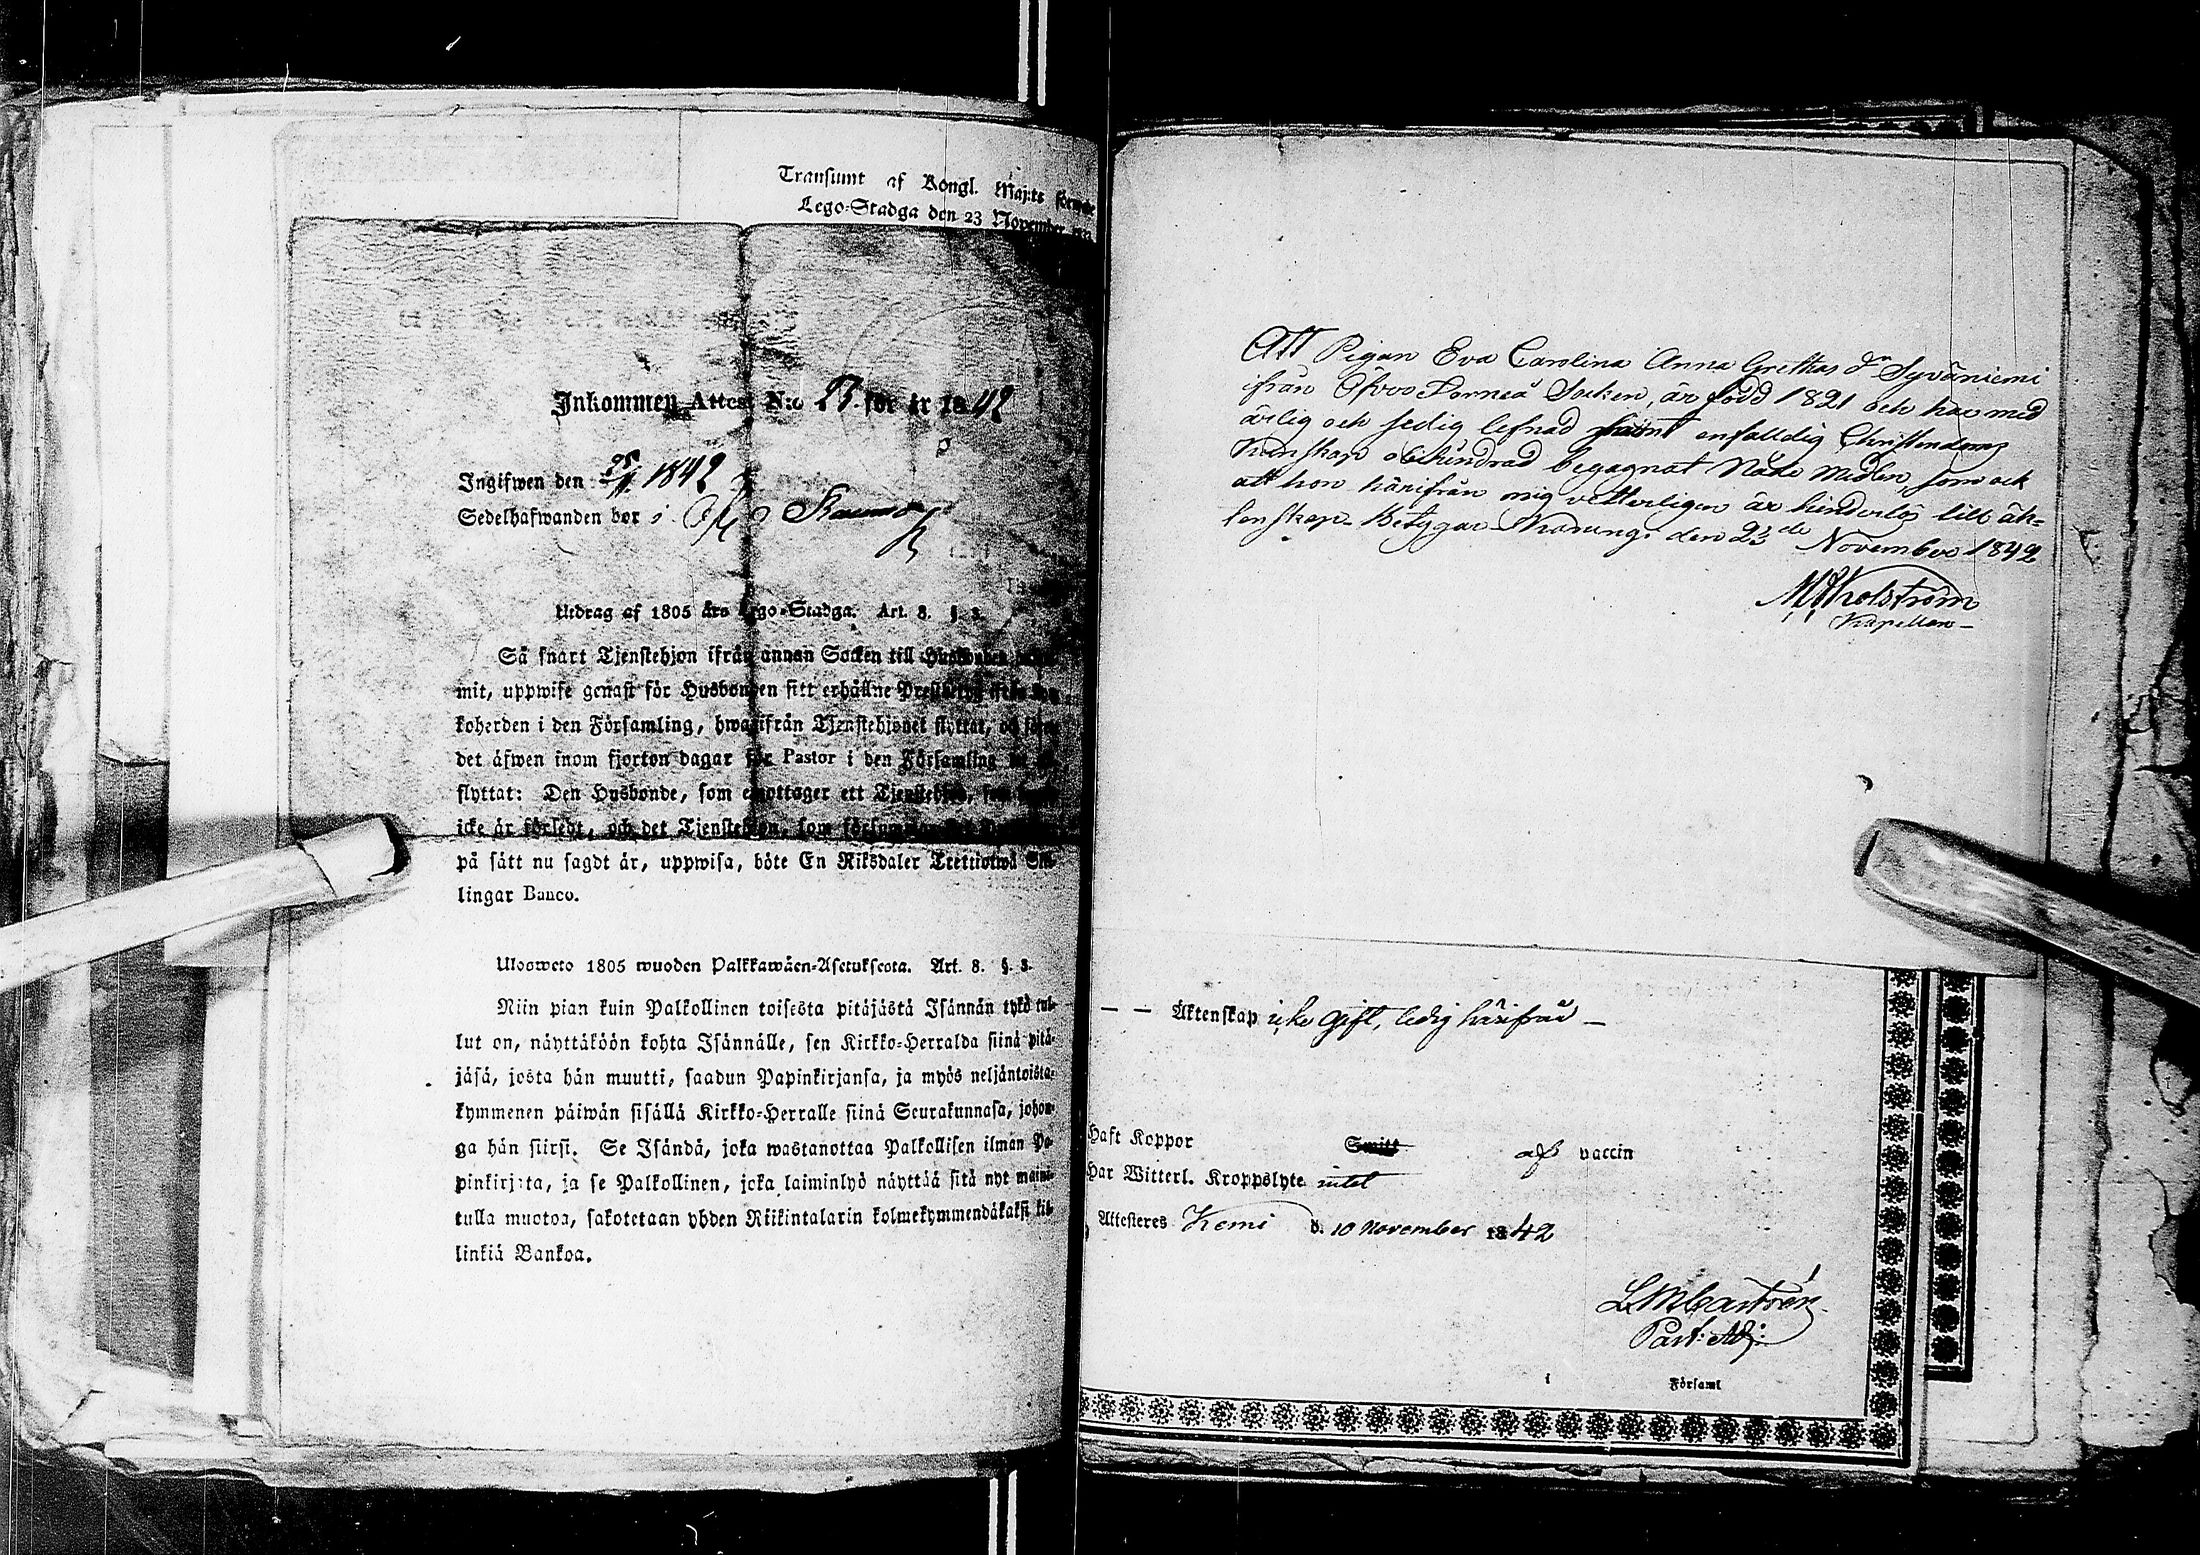 Transumt af Kongl. Maj:ts förnyade
Lego-Stadga den 23 November
Inkommen Attest N:o 23 för år 1842
Ingifwen den 1842
Sedelhafwanden bor i
Utdrag af 1805 års Lego-Stadga. Art. 8. §. 3.
Så snart Tjenstehjon ifrån annan Socken till Husbonden
mit, uppwise genast för Husbonden sitt erhållne
koherden i den Församling, hwarifrån Tjenstehjonet flyttat, och
det äfwen inom fjorton dagar för Pastor i den Församling
flyttat: Den Husbonde, som emottager ett Tjenstehjon, som
icke är försedt, och det Tjenstehjon, som försummar
på sätt nu sagdt är, uppwisa, böte En Riksdaler Trettiotwå Skil-
lingar Banco.
Ulosweto 1805 wuoden Palkkawäen-Asetuksesta. Art. 8. §. 3.
Niin pian kuin Palkollinen toisesta pitäjästä Isännän tykö tul-
lut on, näyttäköön kohta Isännälle, sen Kirkko-Herralda siinä pitä-
jäsä, josta hän muutti, saadun Papinkirjansa, ja myös neljäntoista-
kymmenen päiwän sisällä Kirkko-Herralle siinä Seurakunnasa, johon-
ga hän siirsi. Se Isändä, joka wastanottaa Palkollisen ilman Pa-
pinkirjata, ja se Palkollinen, joka laiminlyö näyttää sitä nyt maini-
tulla muotoa, sakotetaan yhden Riikintalarin kolmekymmendäkaksi kil-
linkiä Bankoa.
Att Pigan Eva Carolina Anna Grethas dr Syväniemi
ifrån Öfver Torneå Socken, är född 1821 och har med
ärlig och sedig lefnad samt enfalldig Christendoms
kunskap obehindrad begagnat Nåde Medlen, som ock
att hon härifrån mig vetterligen är hinderlös till äk=
tenskap. Betygar Karungi den 23de November 1842
Kapellan
— — Äktenskap icke gift, ledig härifrån —
Haft Koppor Smitt af vaccin
Har Witterl. Kroppslyte intet
Attesteres Kemi d. 10 November 1842
L M Castrén
Past: Adj:
i Församl